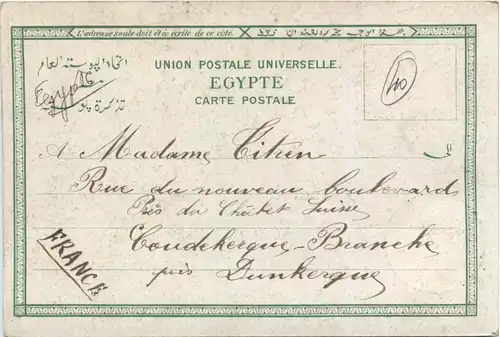 L'adresse seule doit être écrite de ce côté.
اتحاد البوستة العام
UNION POSTALE UNIVERSELLE.
EGYPTE
CARTE POSTALE
Egypte
تذكرة بو
40
A Madame Titren
Rue du nouveau boulevard
Près du Châlet Suisse
Coudekerque-Branche
près Dunkerque
FRANCE